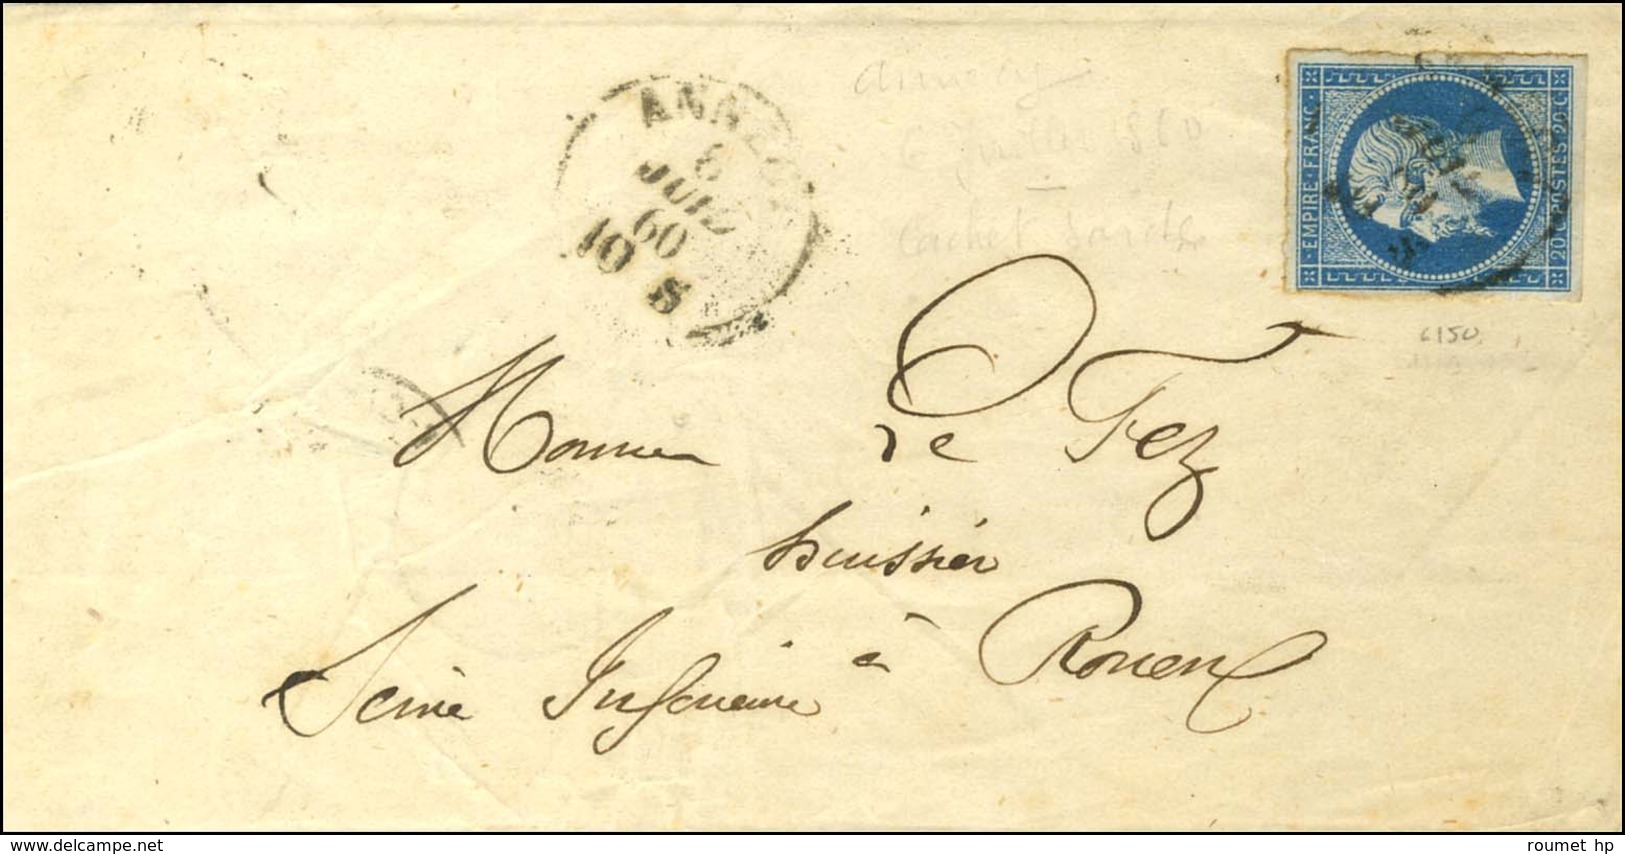 ANNECY
6
JUIL
60
10 S
Annecy
6 Juillet 1860
Cachet Sarde
EMPIRE · FRANC ·
20 C · POSTES · 20 C
6150
Monsieur
Le Fez
huissier
à Rouen
Seine Inférieure
© delcampe.net
roumet hp